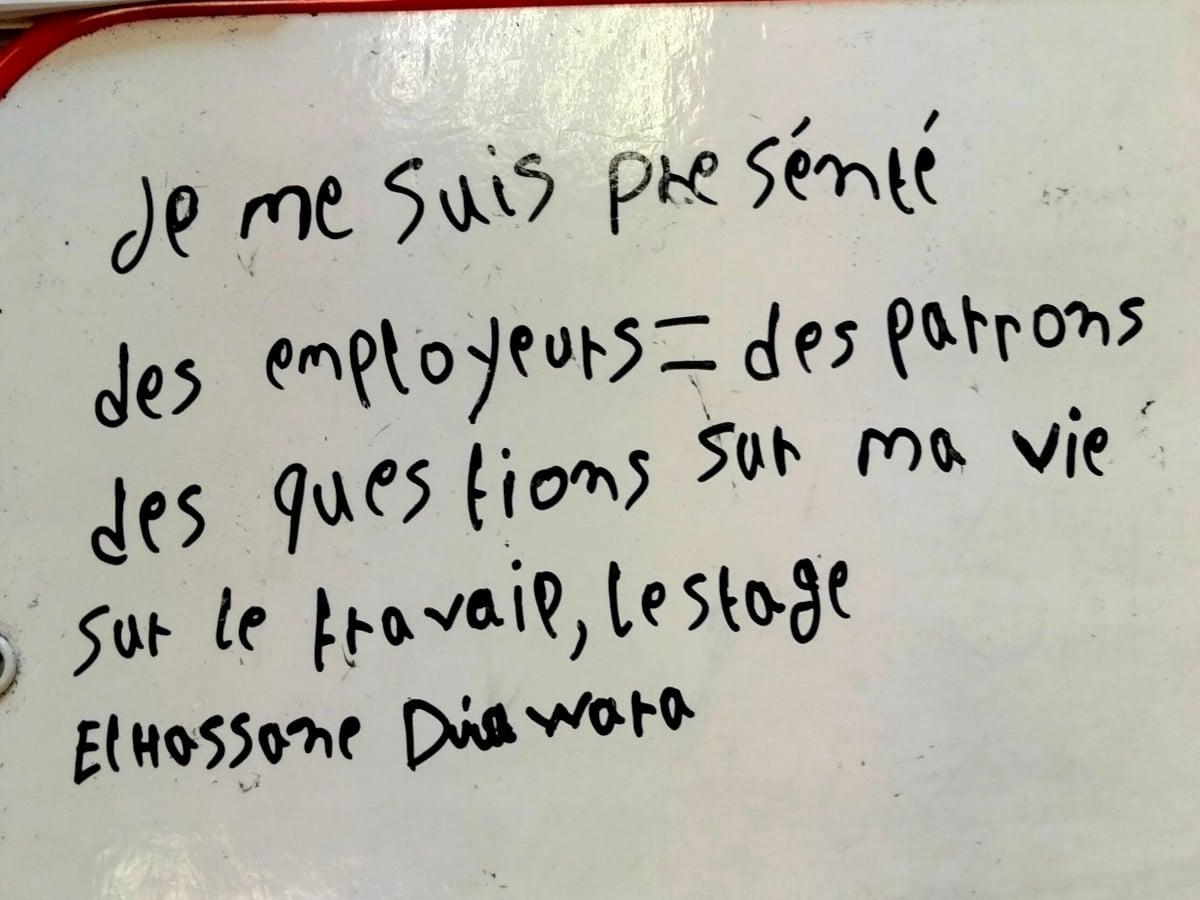 Je me suis presénté
des employeurs = des patrons
des questions sur ma vie
sur le travail, le stage
El Hassane Diawara